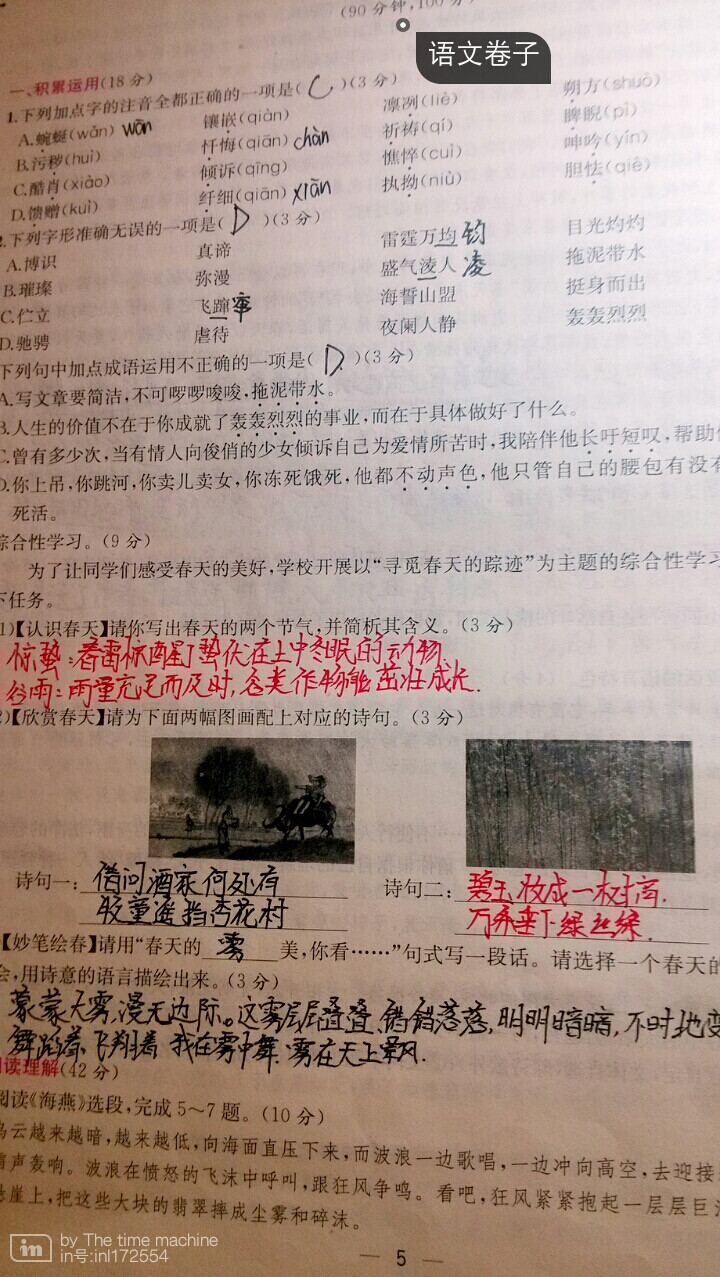 (90分钟,100分)
语文卷子
一、积累运用(18分)
1.下列加点字的注音全都正确的一项是( C )(3分)
A.蜿蜒(wǎn) wān 镶嵌(qiàn) 凛冽(liè) 朔方(shuò)
B.污秽(huì) 忏悔(qiān) chàn 祈祷(qí) 睥睨(pì)
C.酷肖(xiào) 倾诉(qīng) 憔悴(cuì) 呻吟(yín)
D.馈赠(kuì) 纤细(qiān) xiān 执拗(niù) 胆怯(qiè)
2.下列字形准确无误的一项是( D )(3分)
A.博识 真谛 雷霆万均 钧 目光灼灼
B.璀璨 弥漫 盛气淩人 凌 拖泥带水
C.伫立 飞蹿 海誓山盟 挺身而出
D.驰骋 虐待 夜阑人静 轰轰烈烈
下列句中加点成语运用不正确的一项是( D )(3分)
A.写文章要简洁,不可啰啰唆唆,拖泥带水。
B.人生的价值不在于你成就了轰轰烈烈的事业,而在于具体做好了什么。
C.曾有多少次,当有情人向俊俏的少女倾诉自己为爱情所苦时,我陪伴他长吁短叹,帮助
D.你上吊,你跳河,你卖儿卖女,你冻死饿死,他都不动声色,他只管自己的腰包有没有
死活。
综合性学习。(9分)
为了让同学们感受春天的美好,学校开展以“寻觅春天的踪迹”为主题的综合性学习
下任务。
1)【认识春天】请你写出春天的两个节气,并简析其含义。(3分)
惊蛰:春雷惊醒了蛰伏在土中冬眠的动物
谷雨:雨量充足而及时,谷类作物能茁壮成长.
2)【欣赏春天】请为下面两幅图画配上对应的诗句。(3分)
诗句一: 借问酒家何处有
牧童遥指杏花村
诗句二: 碧玉妆成一树高.
万条垂下绿丝绦.
【妙笔绘春】请用“春天的 雾 美,你看……”句式写一段话。请选择一个春天的
会,用诗意的语言描绘出来。(3分)
蒙蒙大雾,漫无边际。这雾层层叠叠、错错落落,明明暗暗,不时地变
舞蹈着、飞翔着 我在雾中舞 雾在天上乘风.
阅读理解(42分)
阅读《海燕》选段,完成5~7题。(10分)
乌云越来越暗,越来越低,向海面直压下来,而波浪一边歌唱,一边冲向高空,去迎接
雷声轰响。波浪在愤怒的飞沫中呼叫,跟狂风争鸣。看吧,狂风紧紧抱起一层层巨
悬崖上,把这些大块的翡翠摔成尘雾和碎沫。
— 5 —
in by The time machine
in号:inl172554